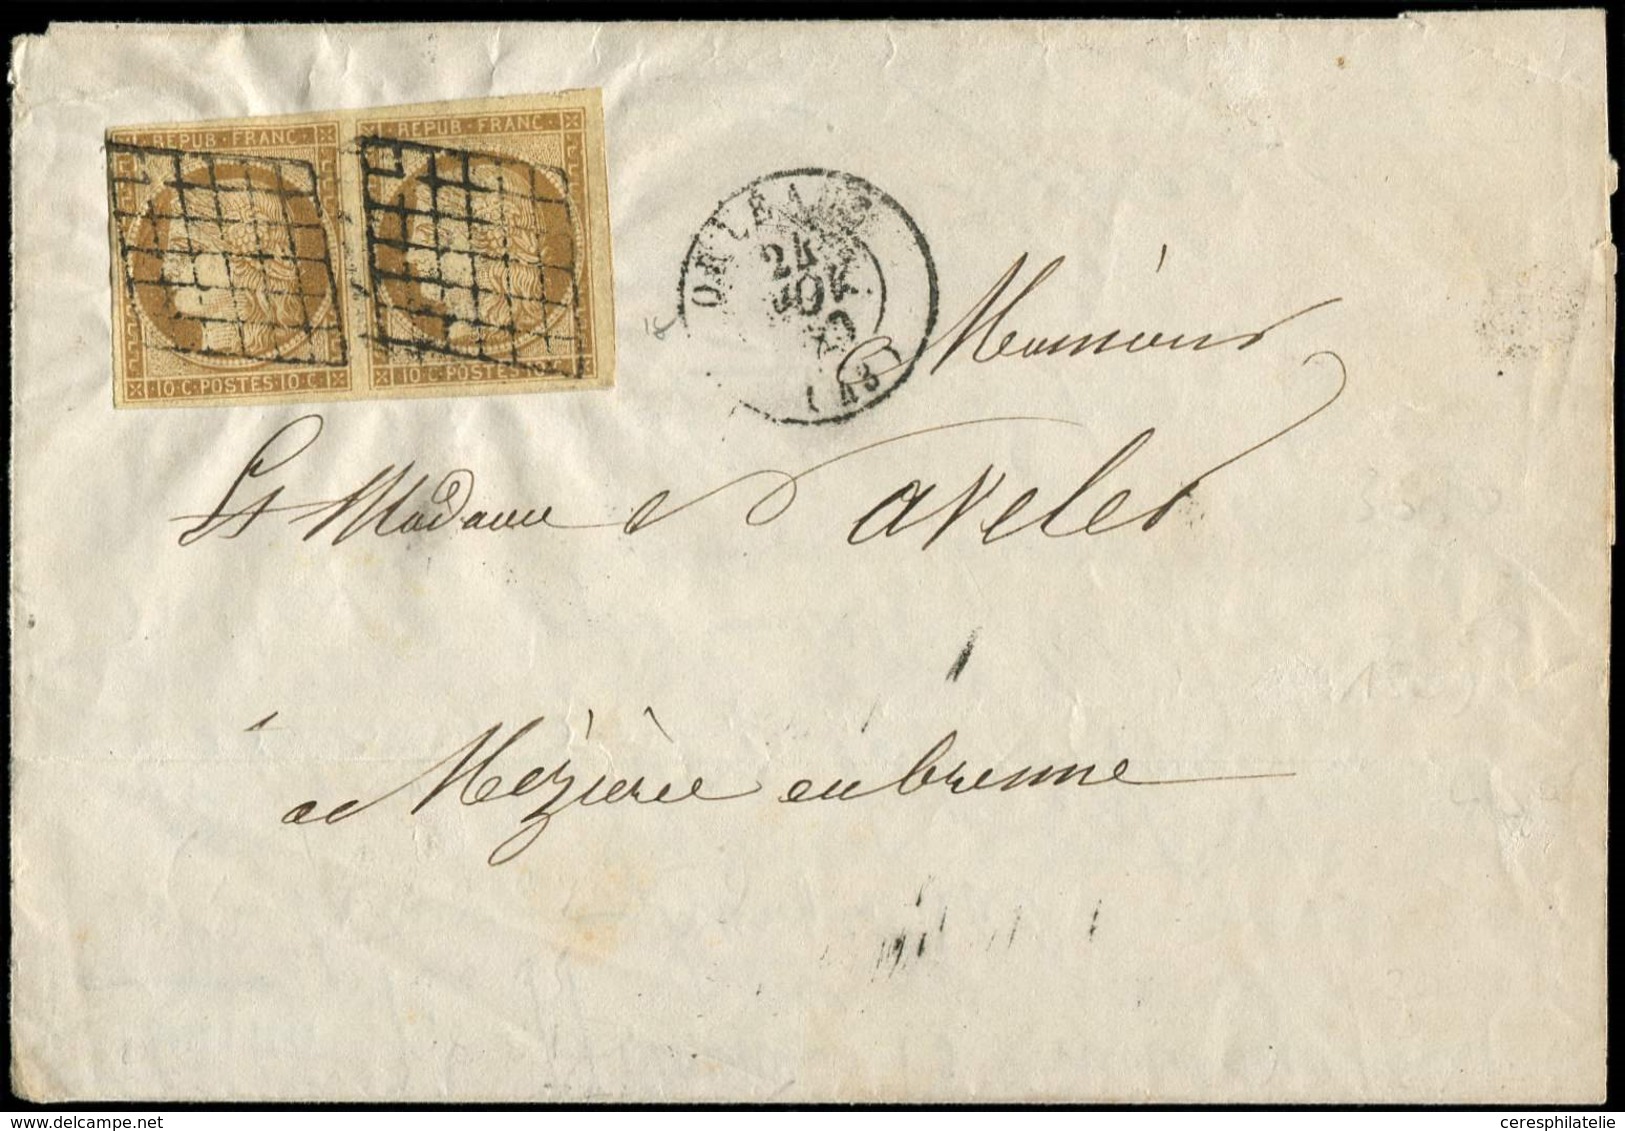 REPUB · FRANC · REPUB · FRANC ·
· 10 · C · POSTES · 10 · C · 10 · C · POSTES · 10
ORLEANS
24
(43)
Monsieur
Et Madame
à Mézière en brenne
ceresphilatelie